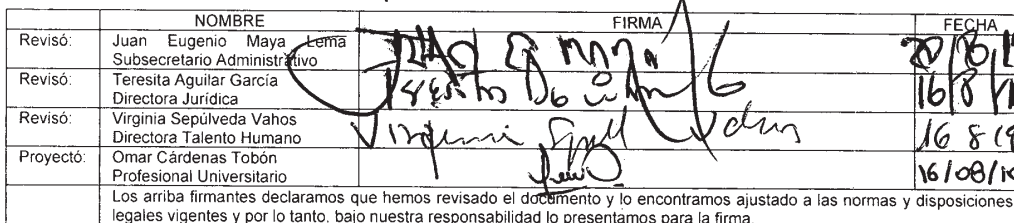 NOMBRE FIRMA FECHA
Revisó: Juan Eugenio Maya Lema
Subsecretario Administrativo
Revisó: Teresita Aguilar García
Directora Jurídica
16/8/
Revisó: Virginia Sepúlveda Vahos
Directora Talento Humano
Virginia 16 8 19
Proyectó: Omar Cárdenas Tobón
Profesional Universitario
16/08/
Los arriba firmantes declaramos que hemos revisado el documento y lo encontramos ajustado a las normas y disposiciones
legales vigentes y por lo tanto, bajo nuestra responsabilidad lo presentamos para la firma.